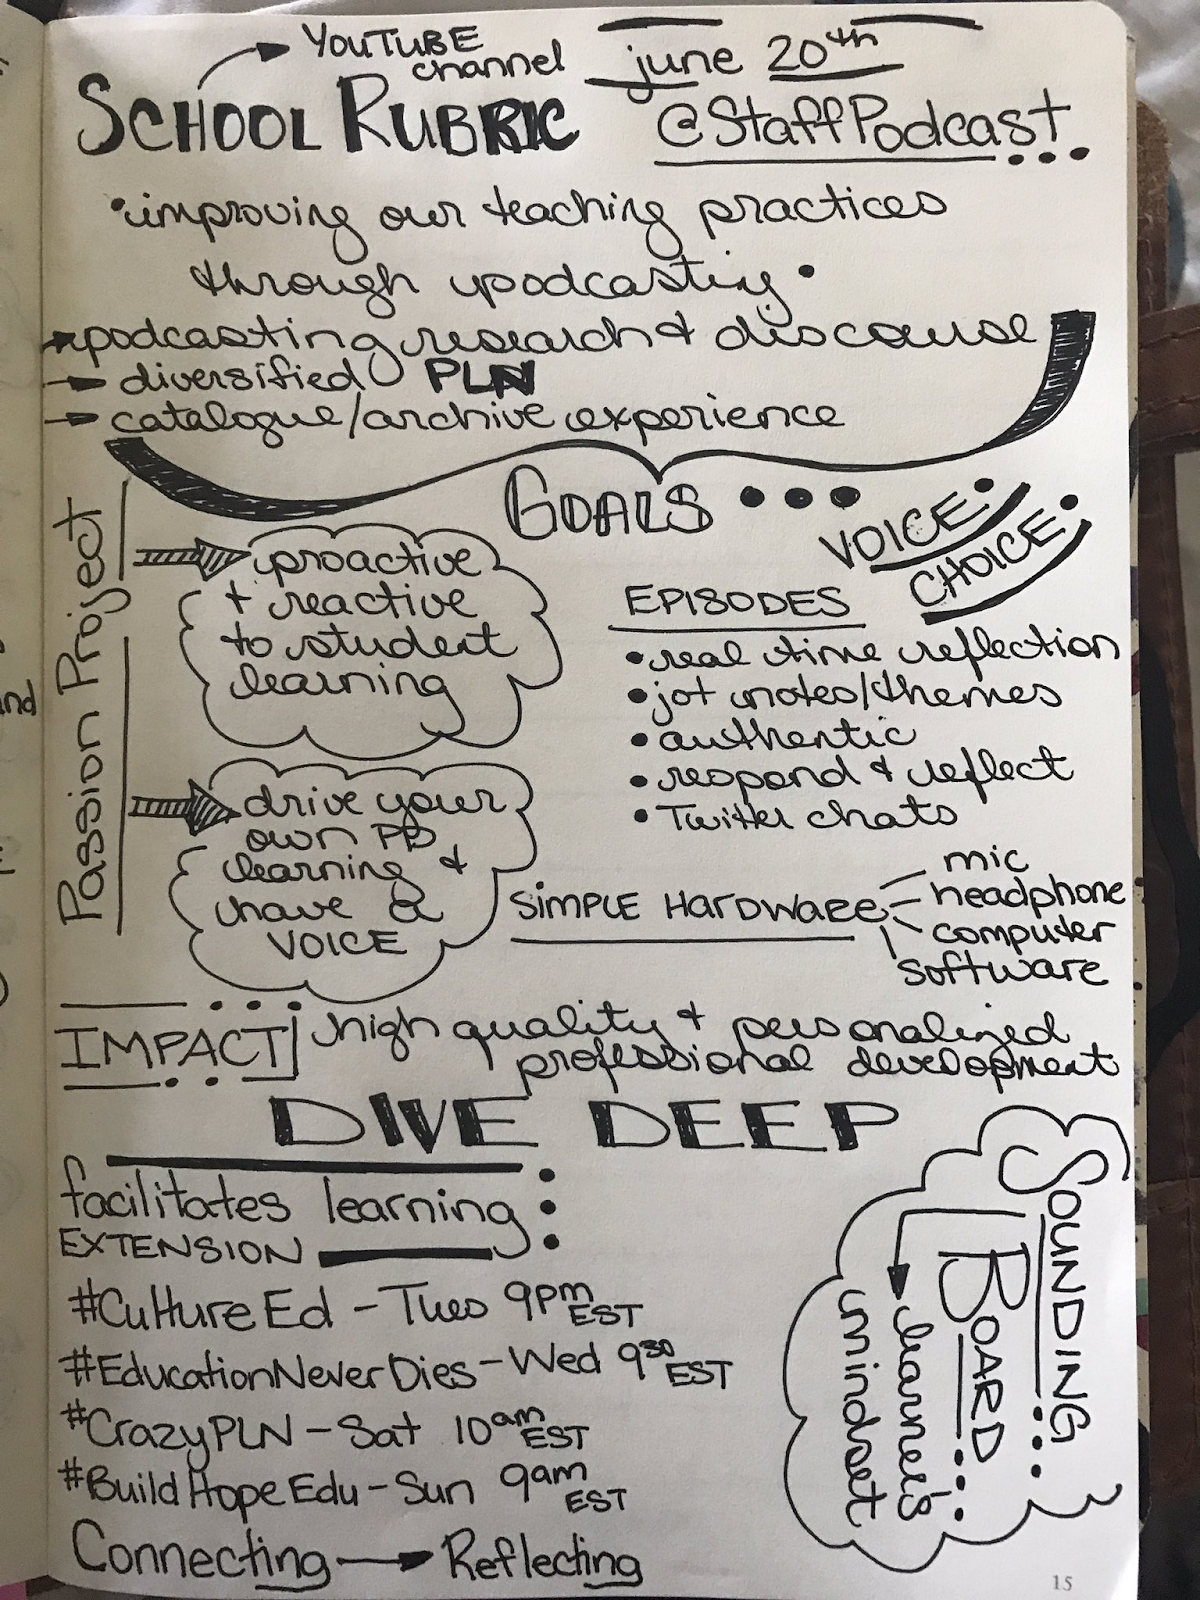 YouTube channel
june 20th
School Rubric
@StaffPodcast...
•improving our teaching practices
through podcasting•
→podcasting research & discourse
→ diversified PLN
→ catalogue/archive experience
Goals...
Voice.
Choice.
Passion Project
proactive
+ reactive
to student
learning
drive your
own PD
learning &
have a
VOICE
EPISODES
•real time reflection
•jot notes/themes
•authentic
•respond & reflect
•Twitter chats
Simple Hardware
mic
headphone
computer
software
IMPACT
high quality & personalized
professional development
DIVE DEEP
facilitates learning
EXTENSION
#CultureEd - Tues 9pm EST
#EducationNeverDies - Wed 9 30 EST
#CrazyPLN - Sat 10am EST
#BuildHopeEdu - Sun 9am EST
Connecting → Reflecting
Sounding...
Board...
learner's
mindset
15
nd